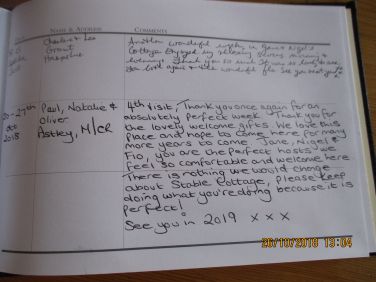 NAME & ADDRESS COMMENTS
Charlotte & Leo
Grant
Hampshire
Another wonderful in Jane & Nigel's
Cottage. Enjoyed relaxing
Thank you so much.
20-27th
Oct
2018
Paul, Natalie &
Oliver
Astley, M/CR
4th visit, Thank you once again for an
absolutely perfect week. Thank you for
the lovely welcome gifts. We love this
place and hope to come here for many
more years to come. Jane, Nigel &
Flo, you are the perfect hosts we
feel so comfortable and welcome here
There is nothing we would change
about Stable Cottage, please keep
doing what you're doing because it is
perfect!
See you in 2019 x x x
26/10/2018 15:04